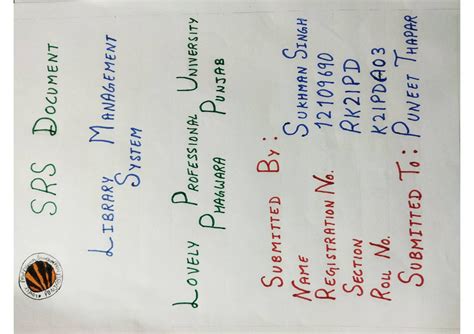 SRS DOCUMENT
LIBRARY MANAGEMENT
SYSTEM
LOVELY PROFESSIONAL UNIVERSITY
PHAGWARA PUNJAB
SUBMITTED BY:
NAME SUKHMAN SINGH
REGISTRATION NO. 12109690
SECTION RK21PD
ROLL NO. K21PDA03
SUBMITTED TO: PUNEET THAPAR